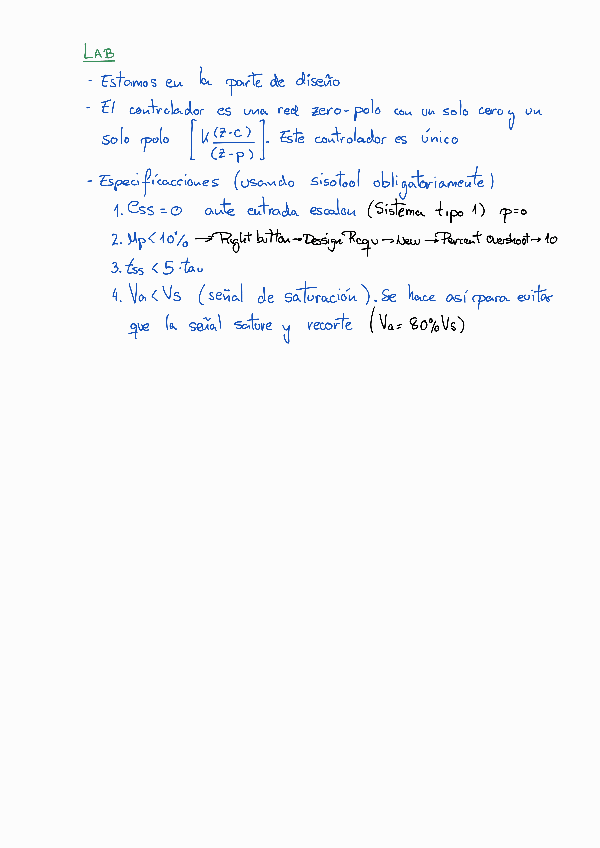 LAB
- Estamos en la parte de diseño
- El controlador es una red zero-polo con un solo cero y un
solo polo [K (z-c) / (z-p)]. Este controlador es único
- Especificacciones (usando sisotool obligatoriamente)
1. ess = 0 ante entrada escalon (Sistema tipo 1) p=0
2. Mp < 10% → Right button → Dessign Requ → New → Percent overshoot → 10
3. tss < 5·tau
4. Va < Vs (señal de saturación). Se hace así para evitar
que la señal sature y recorte (Va = 80% Vs)